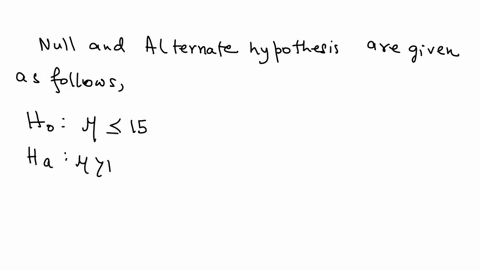 Null and Alternate hypothesis are given
as follows,
H₀: μ ≤ 15
Hₐ: μ > 1